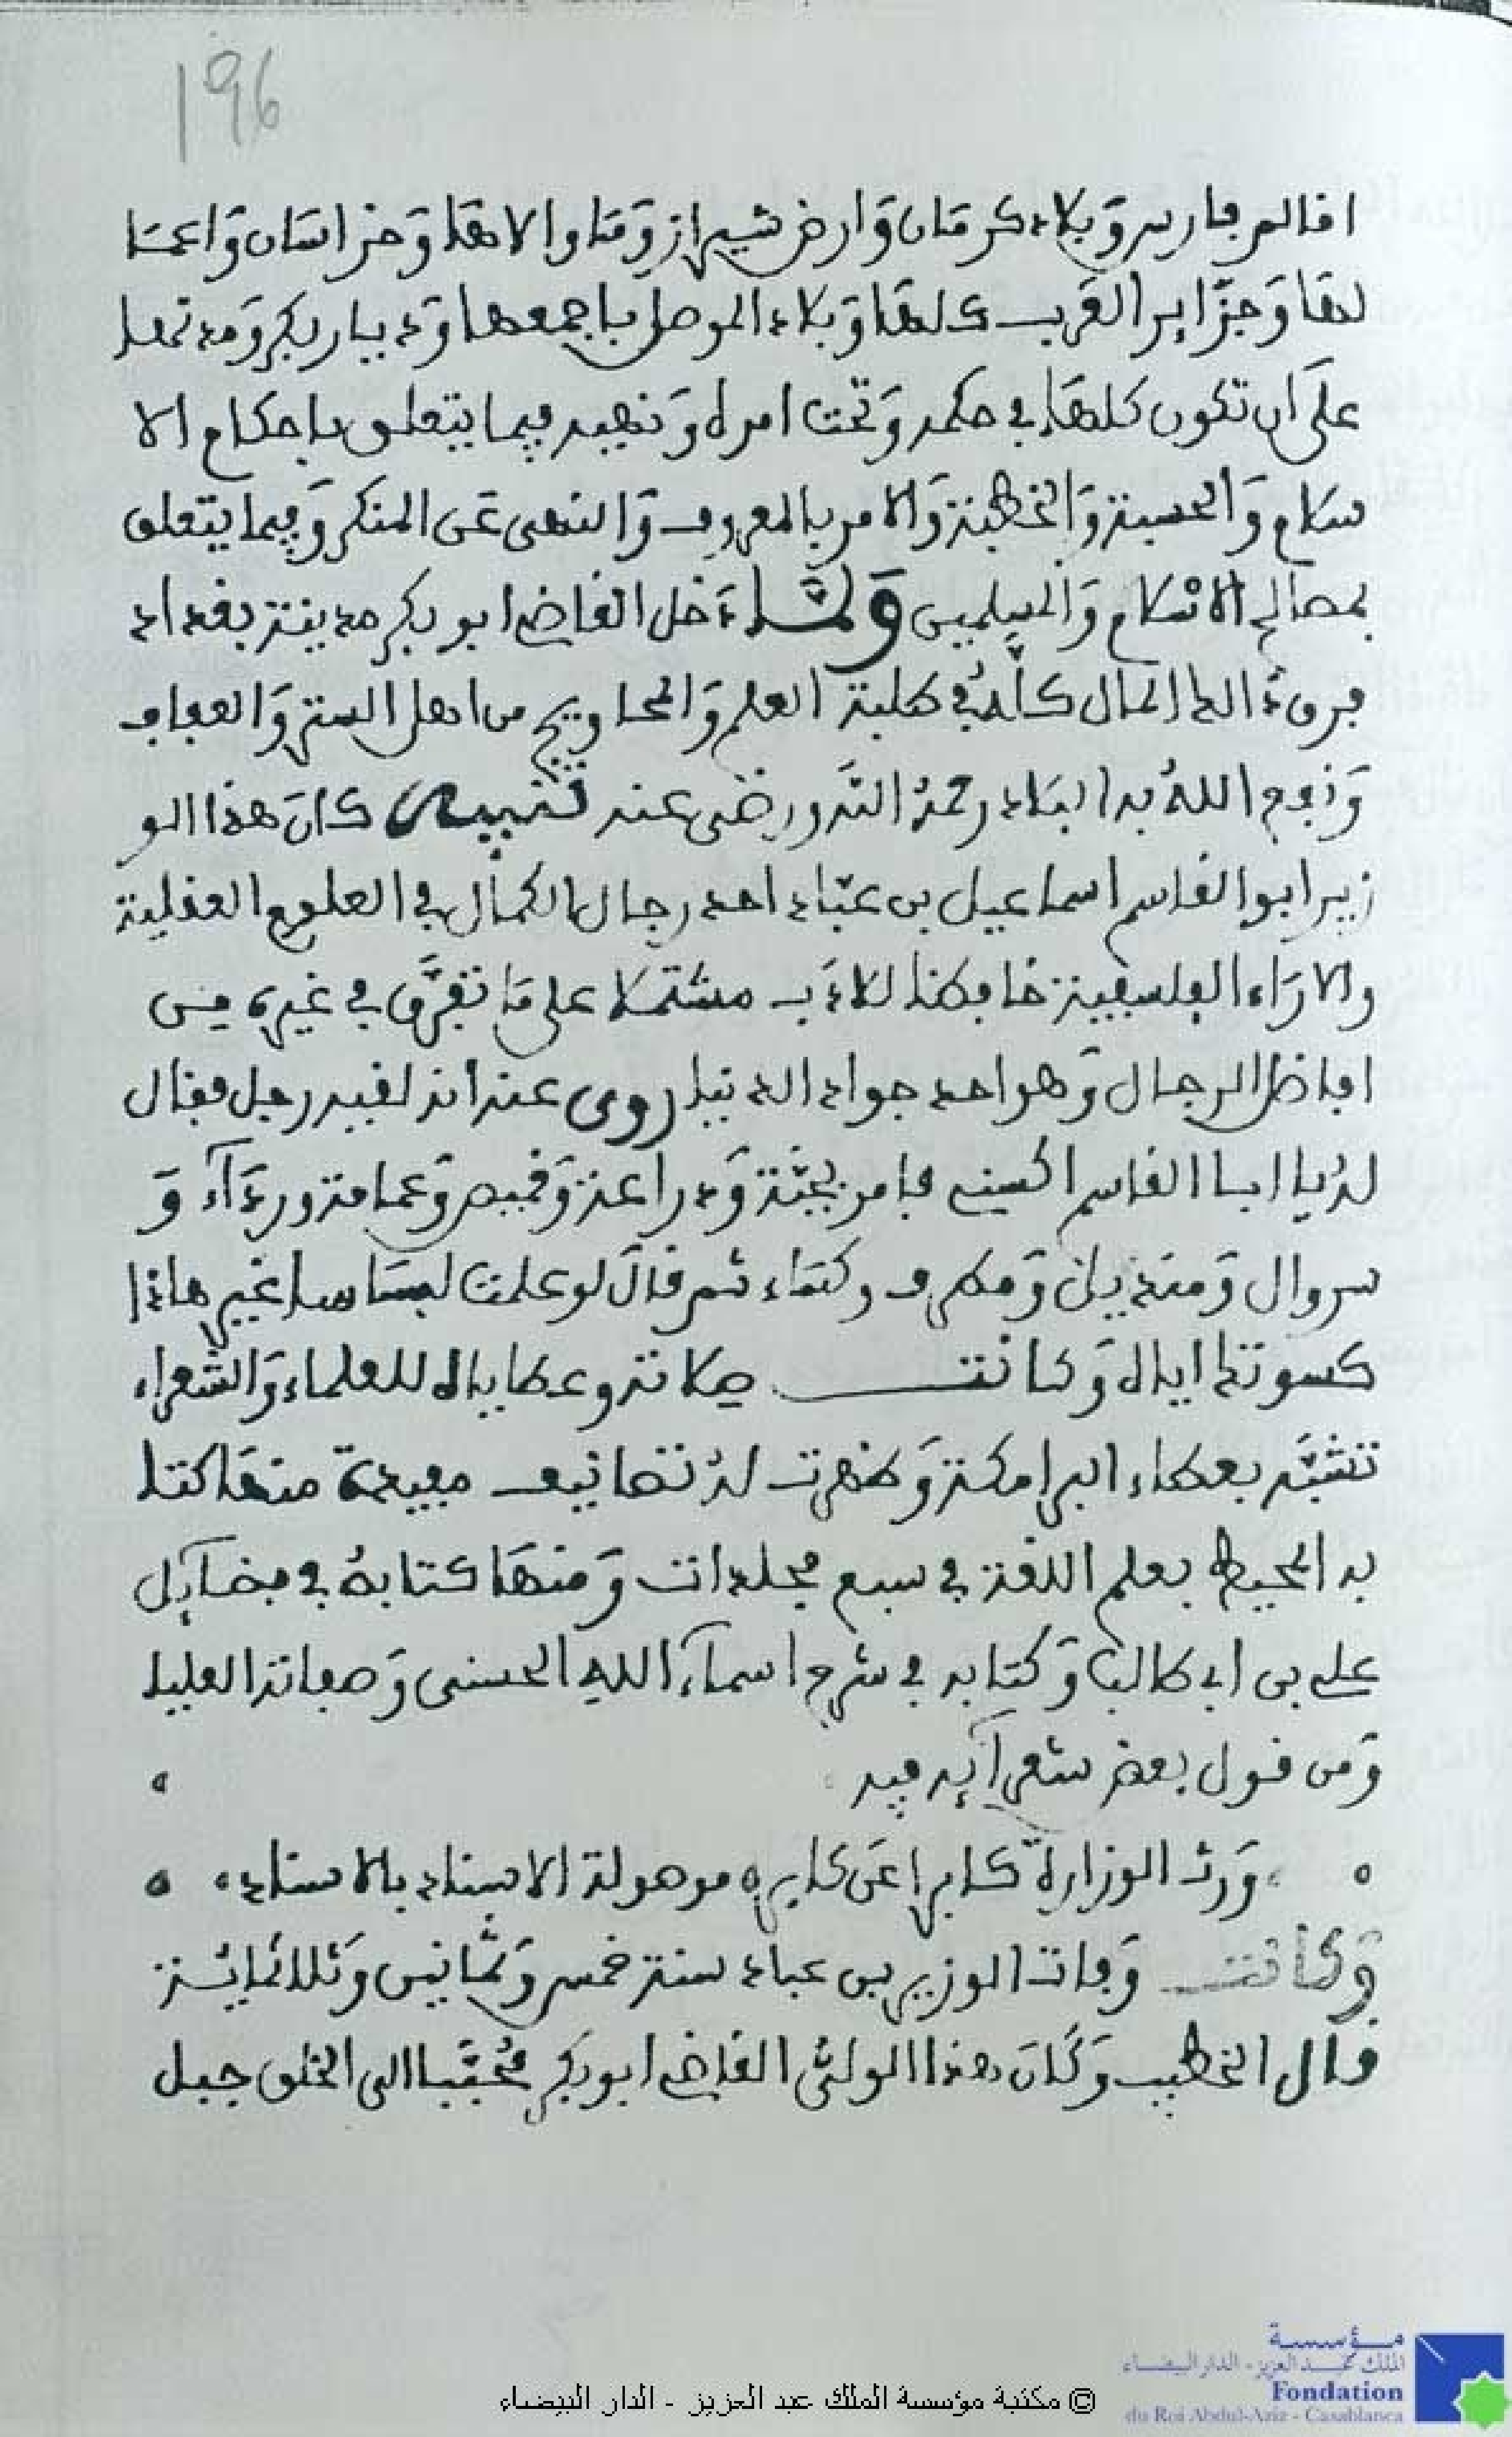 196
اقاليم فارس وَبلاد كرمَان وَارض شيراز وَمَا والاهَا وَخراسَان وَاعمَا
لهَا وَجزَايِر العَرب كلهَا وَبلاد الموصل باجمعها وَديار بكر وَمدنها
علَى ان تكون كلهَا في حكمه وَتحت امره وَنهيه فيما يتعلق باحكام الا
سلام وَالحسبة وَالخطبة وَالامر بالمعروف وَالنهى عَن المنكر وَفيما يتعلق
بمصالح الاسلام وَالمسلمين وَلمَّا دَخل القاضى ابو بكر مدينة بغداد
فرق ذالك المال كلّهُ في طلبة العلم وَالمحاويج من اهل الستر وَالعفاف
وَنفع اللهُ به البلاد رحمهُ اللَّه ورضى عنه تَنبيه كانَ هذا الو
زير ابو القاسم اسماعيل بن عبّاد احد رجال الكمال في العلوم العقلية
والارَاء الفلسفية حافظا للادَب مشتملا على مَا تفرَّق في غيره من
افاضل الرجال وَهو احد جواد الدنيا روى عنه انه لقيه رجل فقال
لهُ يا ابا القاسم اكسنى فامر بجبَّة وَدراعة وَقميص وَعمامة وردَآء وَ
سروال وَمنديل وَمطرف وكسَاء ثم قالَ لو علمت لبَاسا غير هاذا
كسوتك اياه وَكانت صلاته وعطاياه للعلماء وَالشعراء
تشبَّه بعطاء البرامكة وَظهرت لهُ تصانيف مفيدة منهَا كتا
به المحيط بعلم اللغة في سبع مجلدات وَمنهَا كتابهُ في فضآئل
على بن ابى طالب وَكتابه في شرح اسمآء اللهِ الحسنى وَصفاته العليا
وَمن قول بعض شعرآئه فيه
وَرث الوزارة كابرا عَن كابره موصولة الاسناد بالاسناد
وَكانت وَفات الوزير بن عباد سنة خمس وَثمَانين وَثلاثمائة
قال الخطيب وَكَانَ هذا الولىُّ القاضى ابو بكر محبَّبا الى الخلق جبل
مؤسسة
الملك عبد العزيز - الدار البيضاء
Fondation
du Roi Abdul-Aziz - Casablanca
© مكتبة مؤسسة الملك عبد العزيز - الدار البيضاء